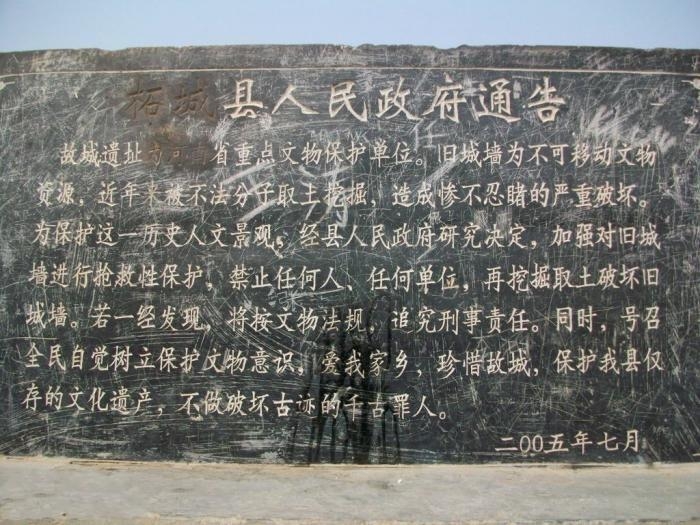 柘城县人民政府通告
故城遗址为河南省重点文物保护单位。旧城墙为不可移动文物
资源，近年来被不法分子取土挖掘，造成惨不忍睹的严重破坏。
为保护这一历史人文景观，经县人民政府研究决定，加强对旧城
墙进行抢救性保护，禁止任何人、任何单位，再挖掘取土破坏旧
城墙。若一经发现，将按文物法规，追究刑事责任。同时，号召
全民自觉树立保护文物意识，爱我家乡，珍惜故城，保护我县仅
存的文化遗产，不做破坏古迹的千古罪人。
二00五年七月